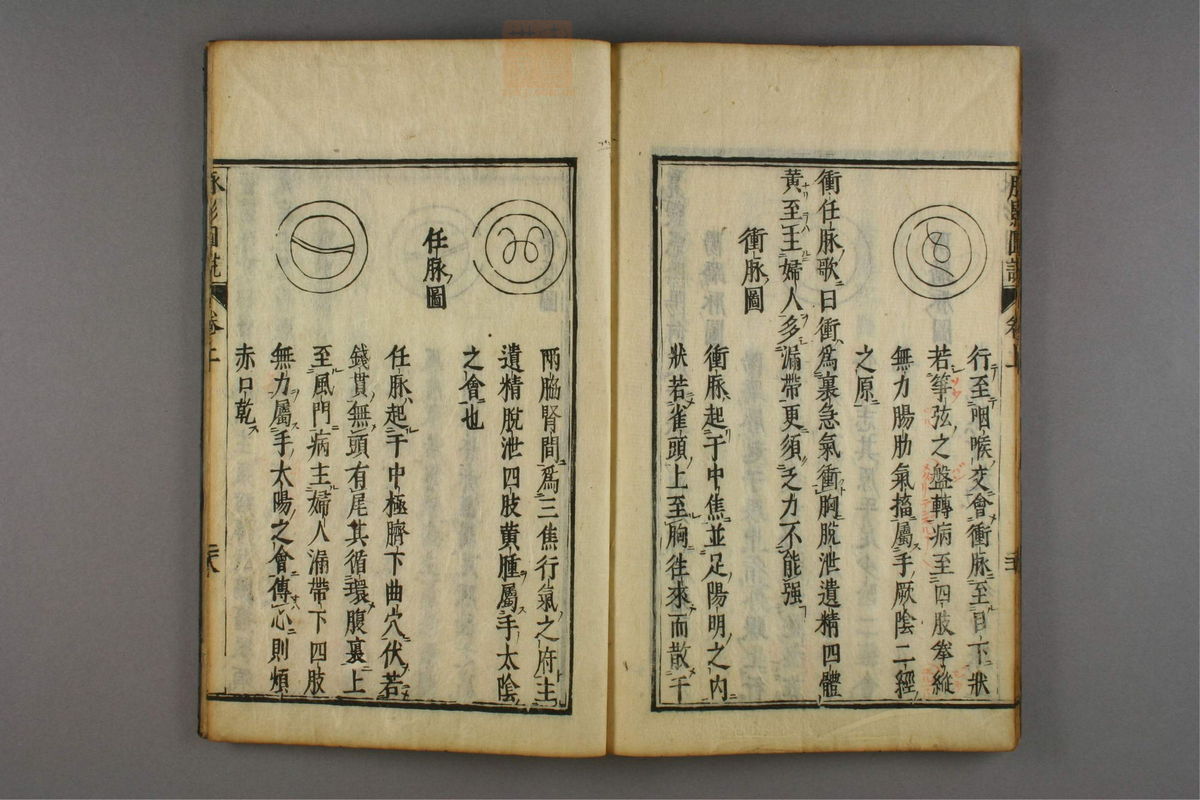 行至咽喉交會衝脉至目下狀
若箏弦之盤轉病至四肢拳縱
無力腸肋氣搐屬手厥陰二經
之原
衝任脉歌曰衝爲裏急氣衝胸脫泄遺精四體
黃至王婦人多漏帶更須乏力不能强
衝脉圖
衝脉起于中焦並足陽明之内
狀若雀頭上至胸往來而散于
兩脇腎間爲三焦行氣之府主
遺精脫泄四肢黃腫屬手太陰
之會也
任脉圖
任脉起于中極臍下曲穴伏若
錢貫無頭有尾其循環腹裏上
至風門病主婦人漏帶下四肢
無力屬手太陽之會傳心則煩
赤口乾
脉影圖説 卷上